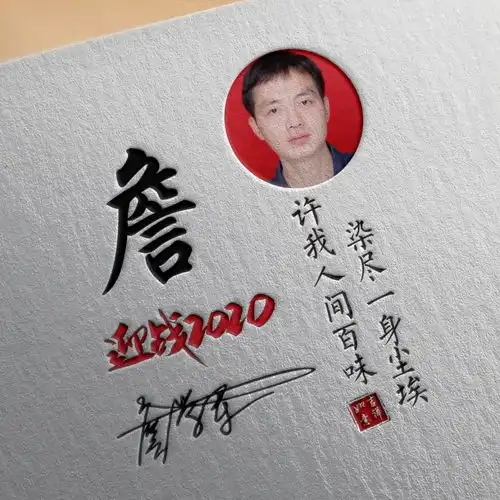 詹
迎战2020
染尽一身尘埃
许我人间百味
吉祥
如意